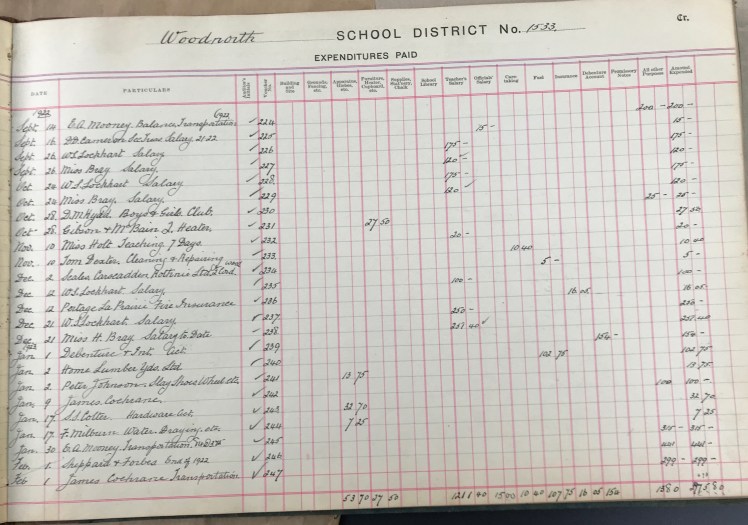 Woodnorth SCHOOL DISTRICT No. 1533. Cr.
EXPENDITURES PAID
DATE PARTICULARS Auditor's Initials Voucher No. Building and Site Grounds, Fencing, etc. Apparatus, Stoves, etc. Furniture, Heater, Cupboard, etc. Supplies, Stationery, Chalk School Library Teacher's Salary Officials' Salary Care taking Fuel Insurance Debenture Account Promissory Notes All other Purposes Amount Expended
1922
Sept. 14 E.A. Mooney. Balance Transportation ✓ 224 200 - 200 -
Sept. 16 D.D. Cameron Sec Treas Salary, 21-22 ✓ 225 15 - 15 -
Sept. 26 W.S. Lockhart Salary ✓ 226 175 - 175 -
Sept. 26 Miss Bray Salary. ✓ 227 120 - 120 -
Oct. 24 W.S. Lockhart Salary ✓ 228 175 - 175 -
Oct. 24 Miss Bray. Salary. ✓ 229 120 120 -
Oct. 28. Boys & Girls Club. ✓ 230 25 - 25 -
Oct. 28. Gibson & McBain 2. Heater. ✓ 231 27 50 27 50
Nov. 10 Miss Holt Teaching 7 Days. ✓ 232 20 - 20 -
Nov. 10 Tom Doxter. Cleaning & Repairing ✓ 233 10 40 10 40
Dec. 2 Scales ✓ 234 5 - 5 -
Dec. 12 W.S. Lockhart Salary ✓ 235 100 - 100 -
Dec. 12 Portage La Prairie Fire Insurance ✓ 236 16 05 16 05
Dec. 21 W.S. Lockhart Salary ✓ 237 250 - 250 -
Dec. 21 Miss H. Bray Salary to Date ✓ 238 258 40 258 40
1923
Jan. 1 Debenture & Int. Act. ✓ 239 154 - 154 -
Jan. 2 Home Lumber Yds. Ltd ✓ 240 102 75 102 75
Jan. 2 Peter Johnson. ✓ 241 13 75 13 75
Jan. 9 James. Cochrane, ✓ 242 100 100 -
Jan. 17. S.S. Cotter. Hardware Act. ✓ 243 32 70 32 70
Jan. 17. F. Milburn Water. Draying. etc ✓ 244 7 25 7 25
Jan. 30 E.A. Mooney. Transportation. ✓ 245 315 - 315 -
Feb. 1 Sheppard & Forbes End of 1922 ✓ 246 441 - 441 -
Feb 1 James Cochrane Transportation ✓ 247 299 - 299 -
53 70 27 50 15 00 10 40 107 75 16 05 154